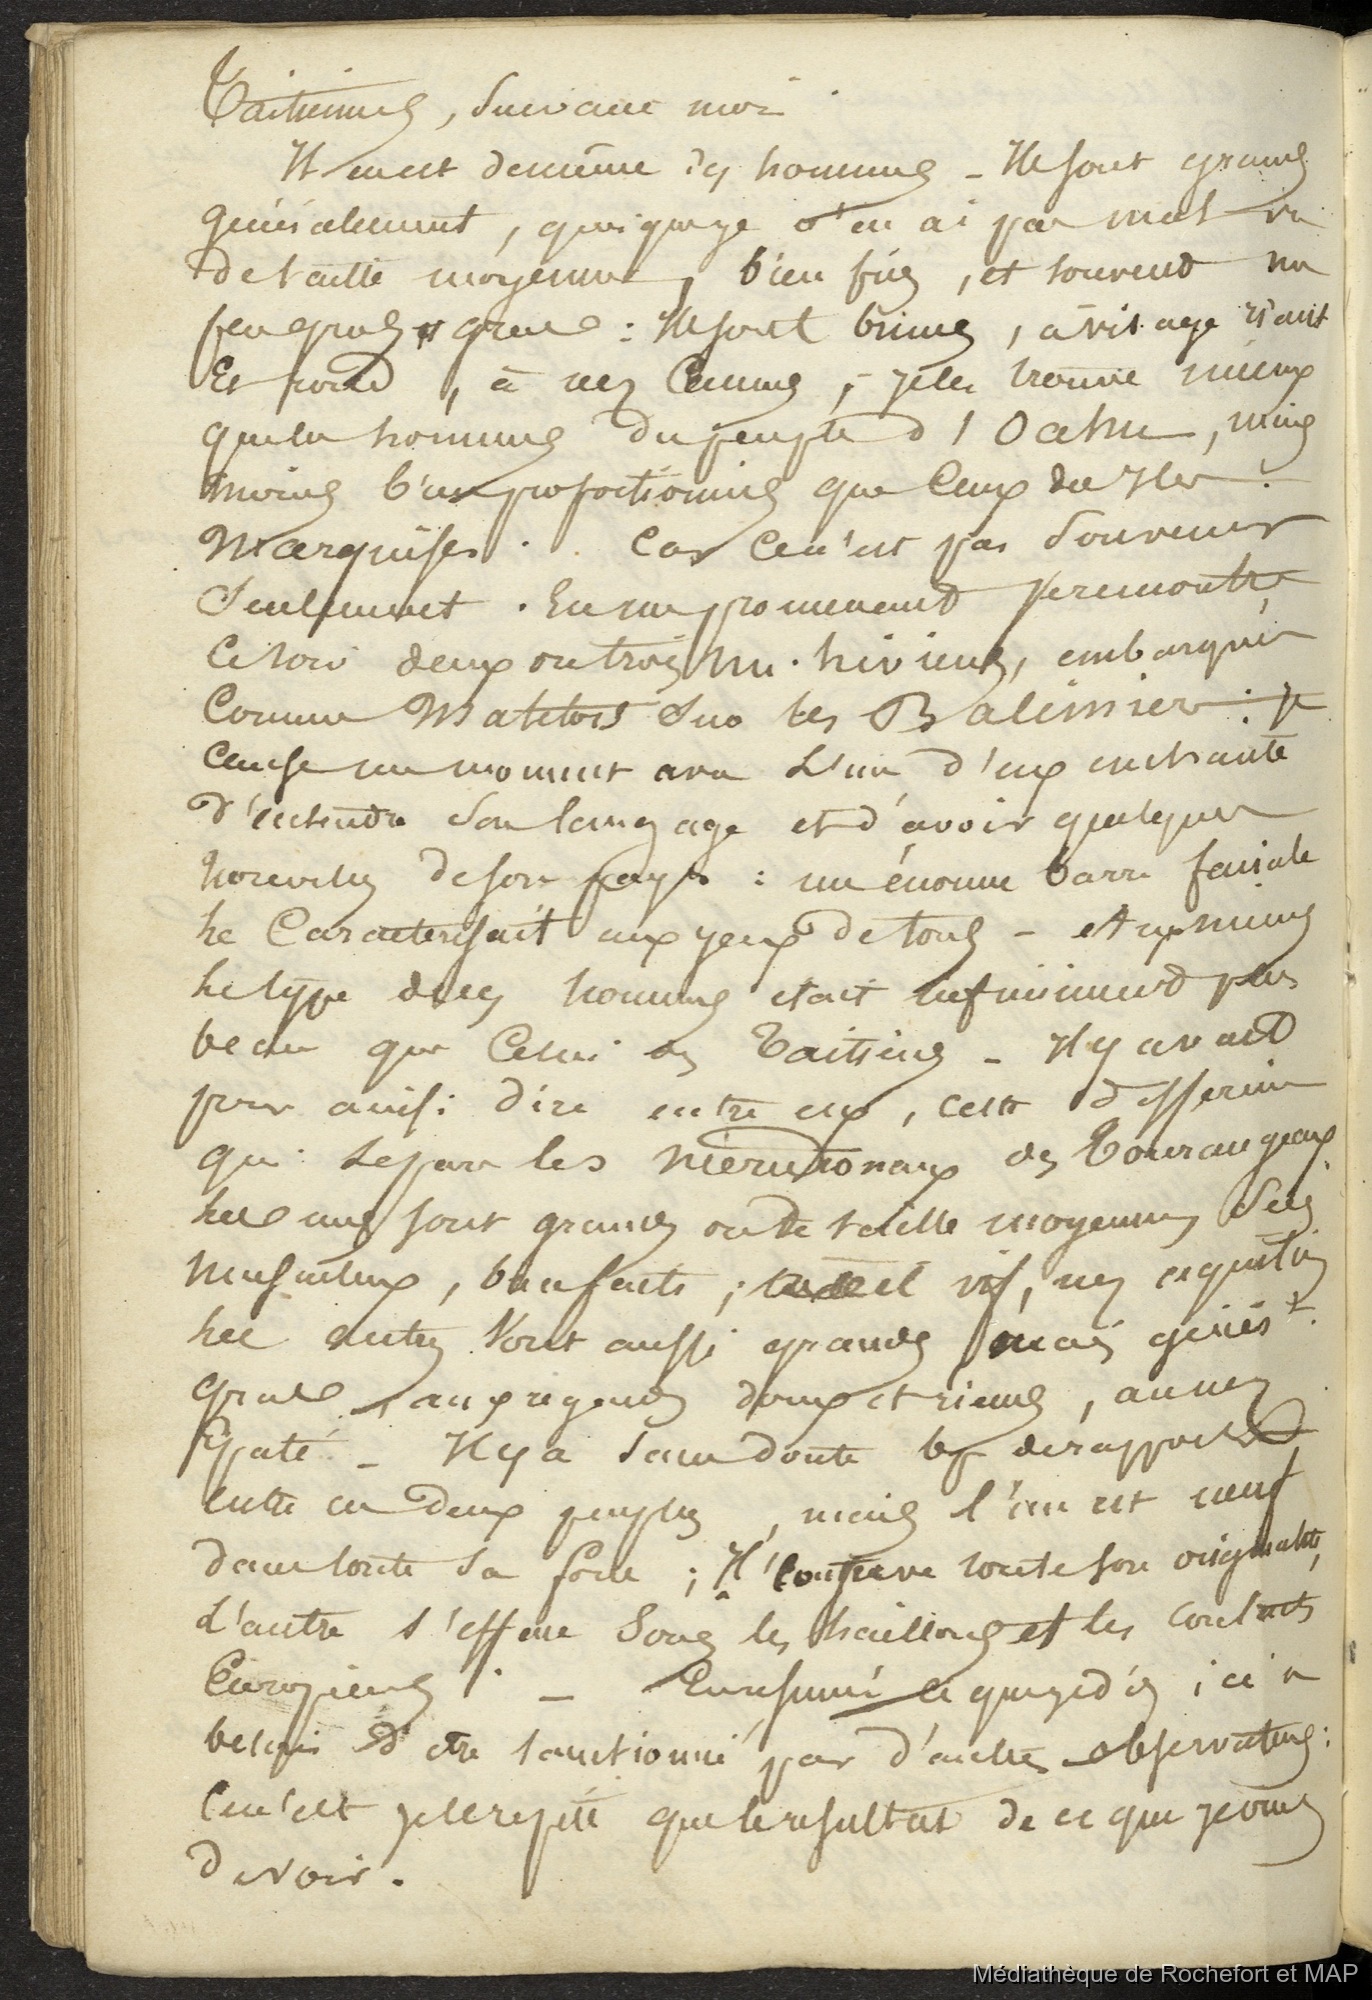 Taïtiennes, suivant moi.
Il en est de même des hommes _ Ils sont grands
généralement, quoique j'en ai pas mal vu
de taille moyenne, bien fùs, et souvent un
peu gras : Ils sont bruns, à visage riant
Et rond, à nez Camus, _ je les trouve mieux
que les hommes du peuple d'Oahu, mais
moins bien proportionnés que Ceux des Iles
Marquises. Car Ce n'est pas Souvenir
Seulement. En me promenant je remontre
Ce soir deux ou trois nu.hiviens, embarqués
Comme Matelots sur les Baleiniers : je
Cause un moment avec L'un d'eux enchanté
d'entendre son langage et d'avoir quelques
nouvelles de son pays : une énorme barre faciale
le Caracterisait aux yeux de tous _ et
le type de ces hommes etait infiniment plus
beau que Celui des Taitiens _ Il y avait
pour ainsi dire entre eux, cette differance
qui separe les Méridionaux des Tourangeaux
Les uns sont grands ou de taille moyenne, Secs
Musculeux, bien faits ; oeil vif, nez aquilin
Les autres sont aussi grands mais génért.
gras, aux regards doux et riants, au nez
Epaté _ Il y a sans doute bp de rapports
entre ces deux peuples, mais l'un est neuf
dans toute sa force ; Il conserve toute son originalité,
L'autre s'efface Sous les haillons et les contacts
Européens. _ En résumé ce que je dis ici a
besoin d'etre sanctionné par d'autres observateurs :
Ce n'est je le repete que le resultat de ce que je viens
de voir.
Médiathèque de Rochefort et MAP